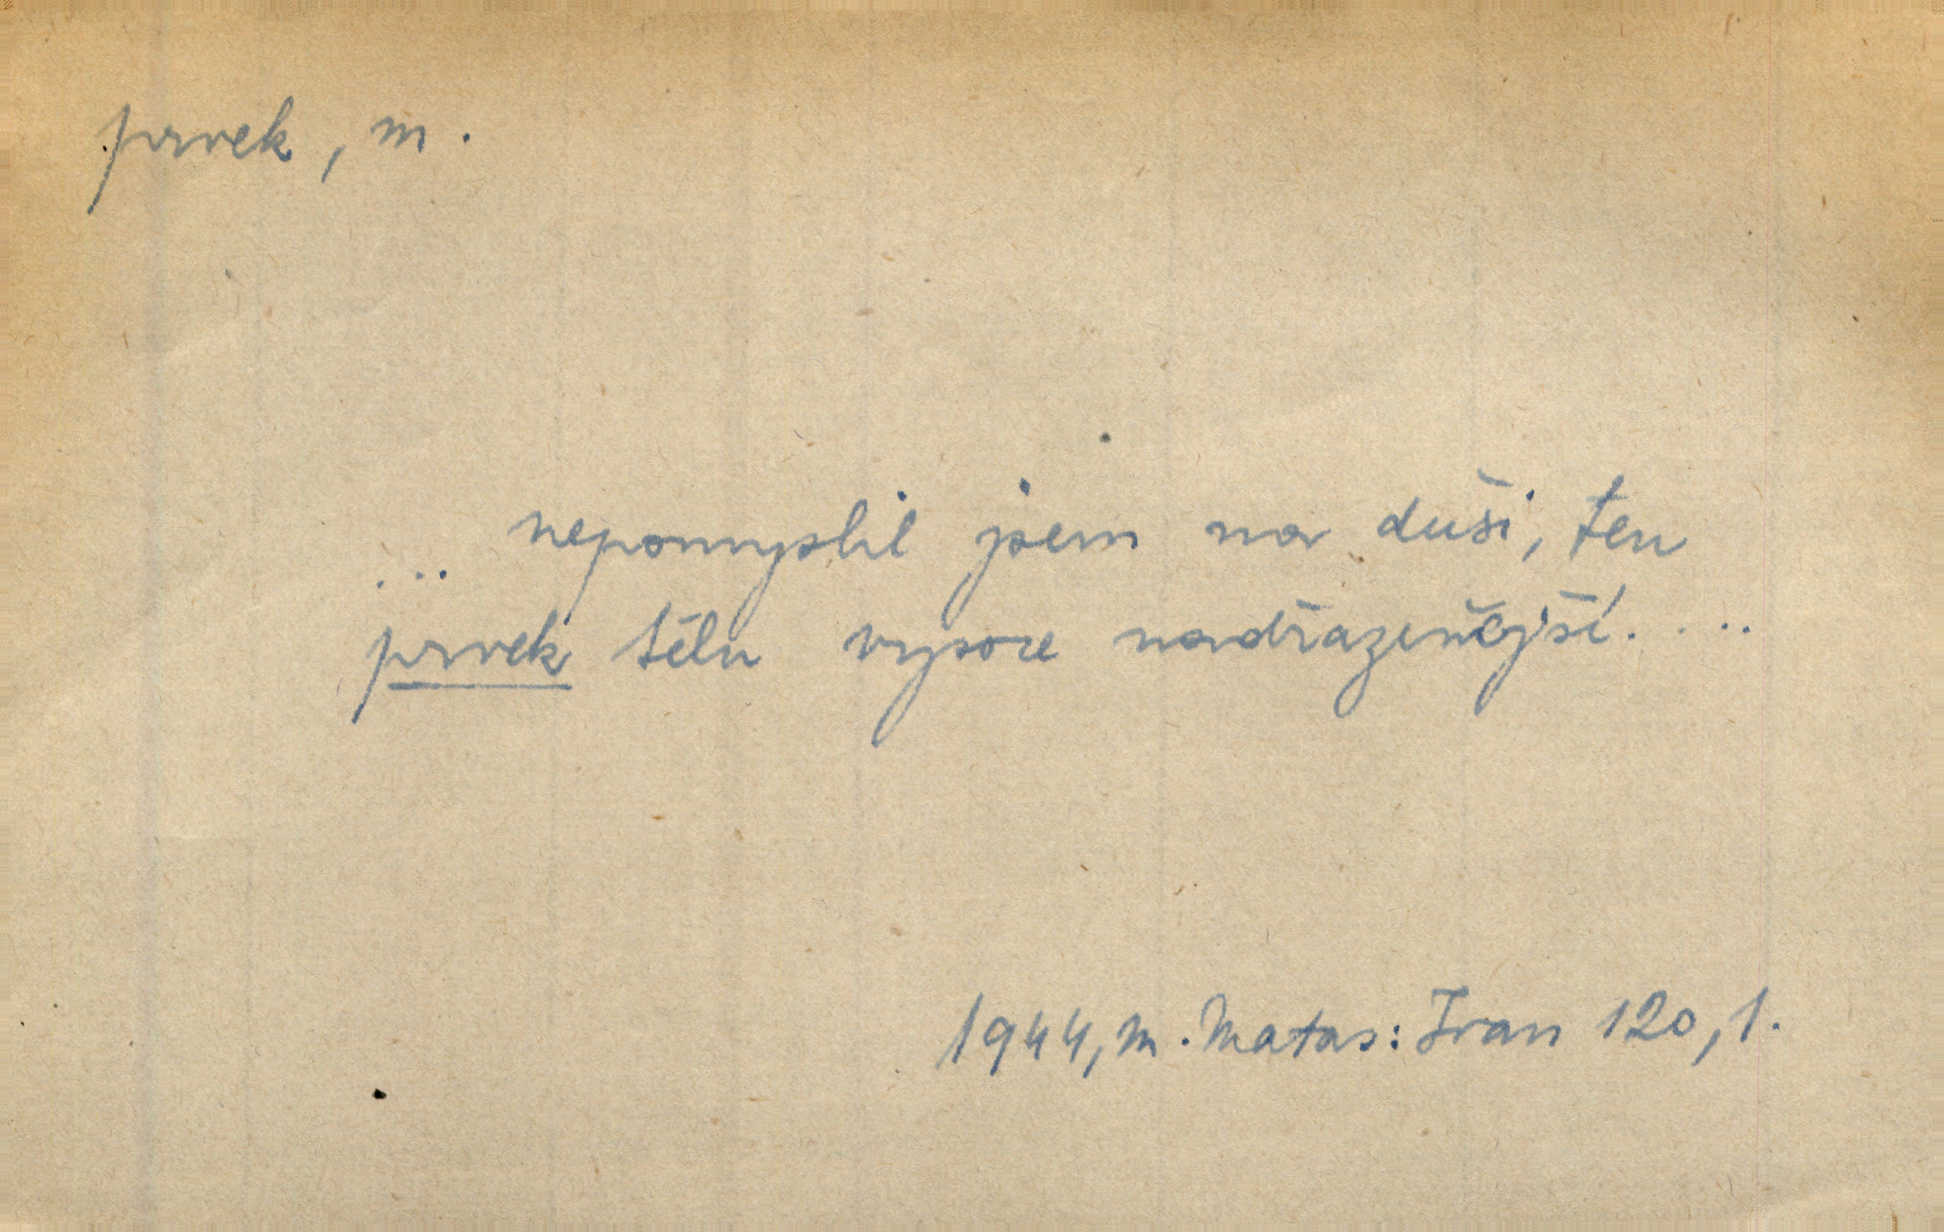 prvek, m.
... nepomyslil jsem na duši, ten
prvek tělu vysoce nadřazenější. ...
1944, M. Matas: Ivan 120, 1.